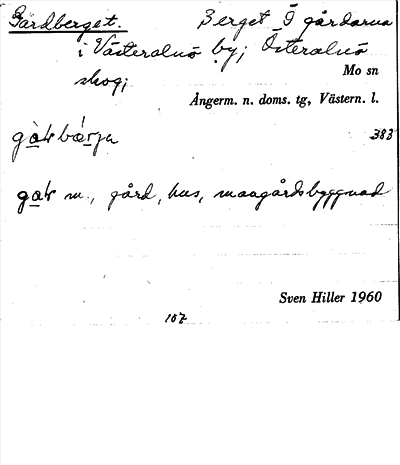 Gårdberget. Berget Ö gårdarna
i Västeralnö by; Österalnö
skog;
Mo sn
Ångerm. n. doms. tg, Västern. l.
383
gaṛ m., gård, hus, mangårdsbyggnad
Sven Hiller 1960
107